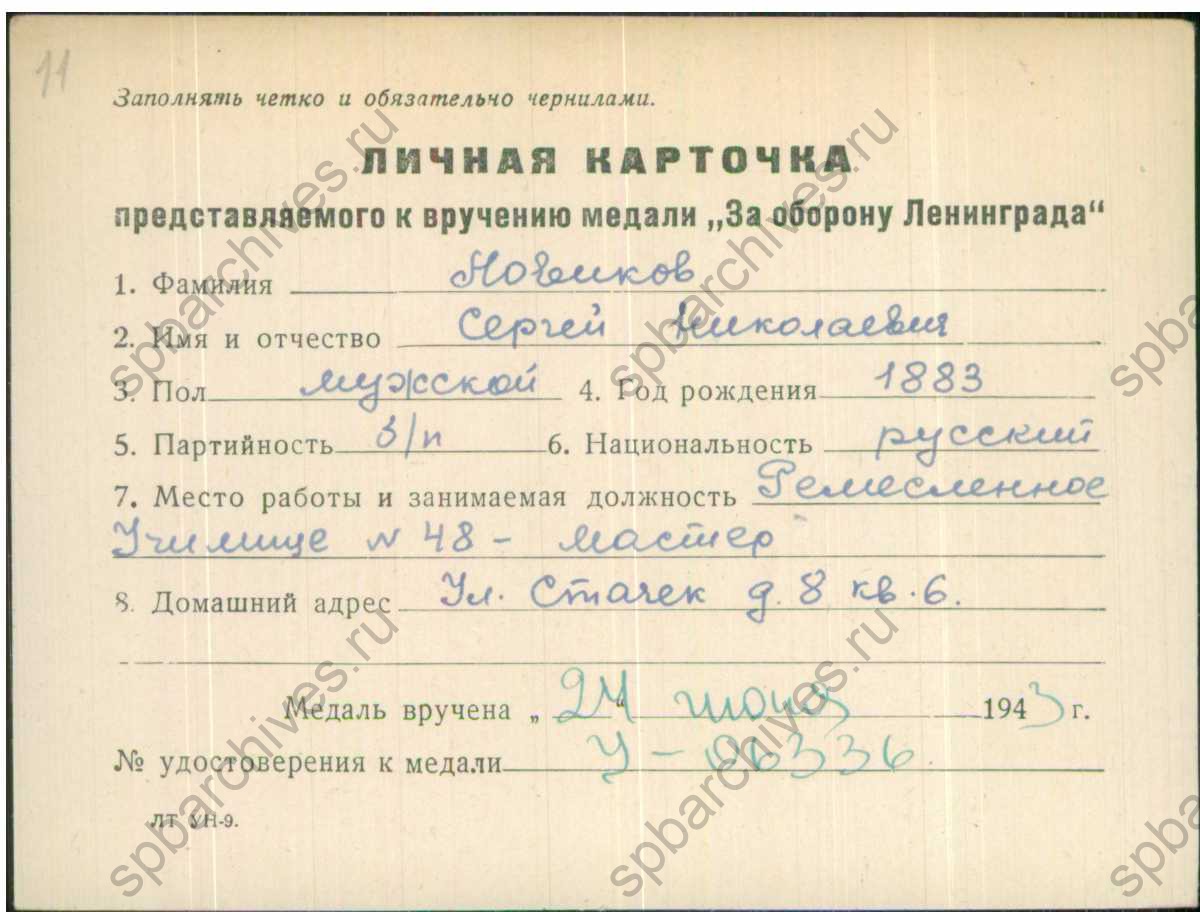 11
Заполнять четко и обязательно чернилами.
ЛИЧНАЯ КАРТОЧКА
представляемого к вручению медали „За оборону Ленинграда“
1. Фамилия Новиков
2. Имя и отчество Сергей Николаевич
3. Пол мужской 4. Год рождения 1883
5. Партийность б/п 6. Национальность русский
7. Место работы и занимаемая должность Ремесленное
Училище N 48 - мастер
8. Домашний адрес Ул. Стачек д. 8 кв. 6.
Медаль вручена „24“ июня 1943 г.
№ удостоверения к медали У - 06336
ЛТ УН-9.
spbarchives.ru